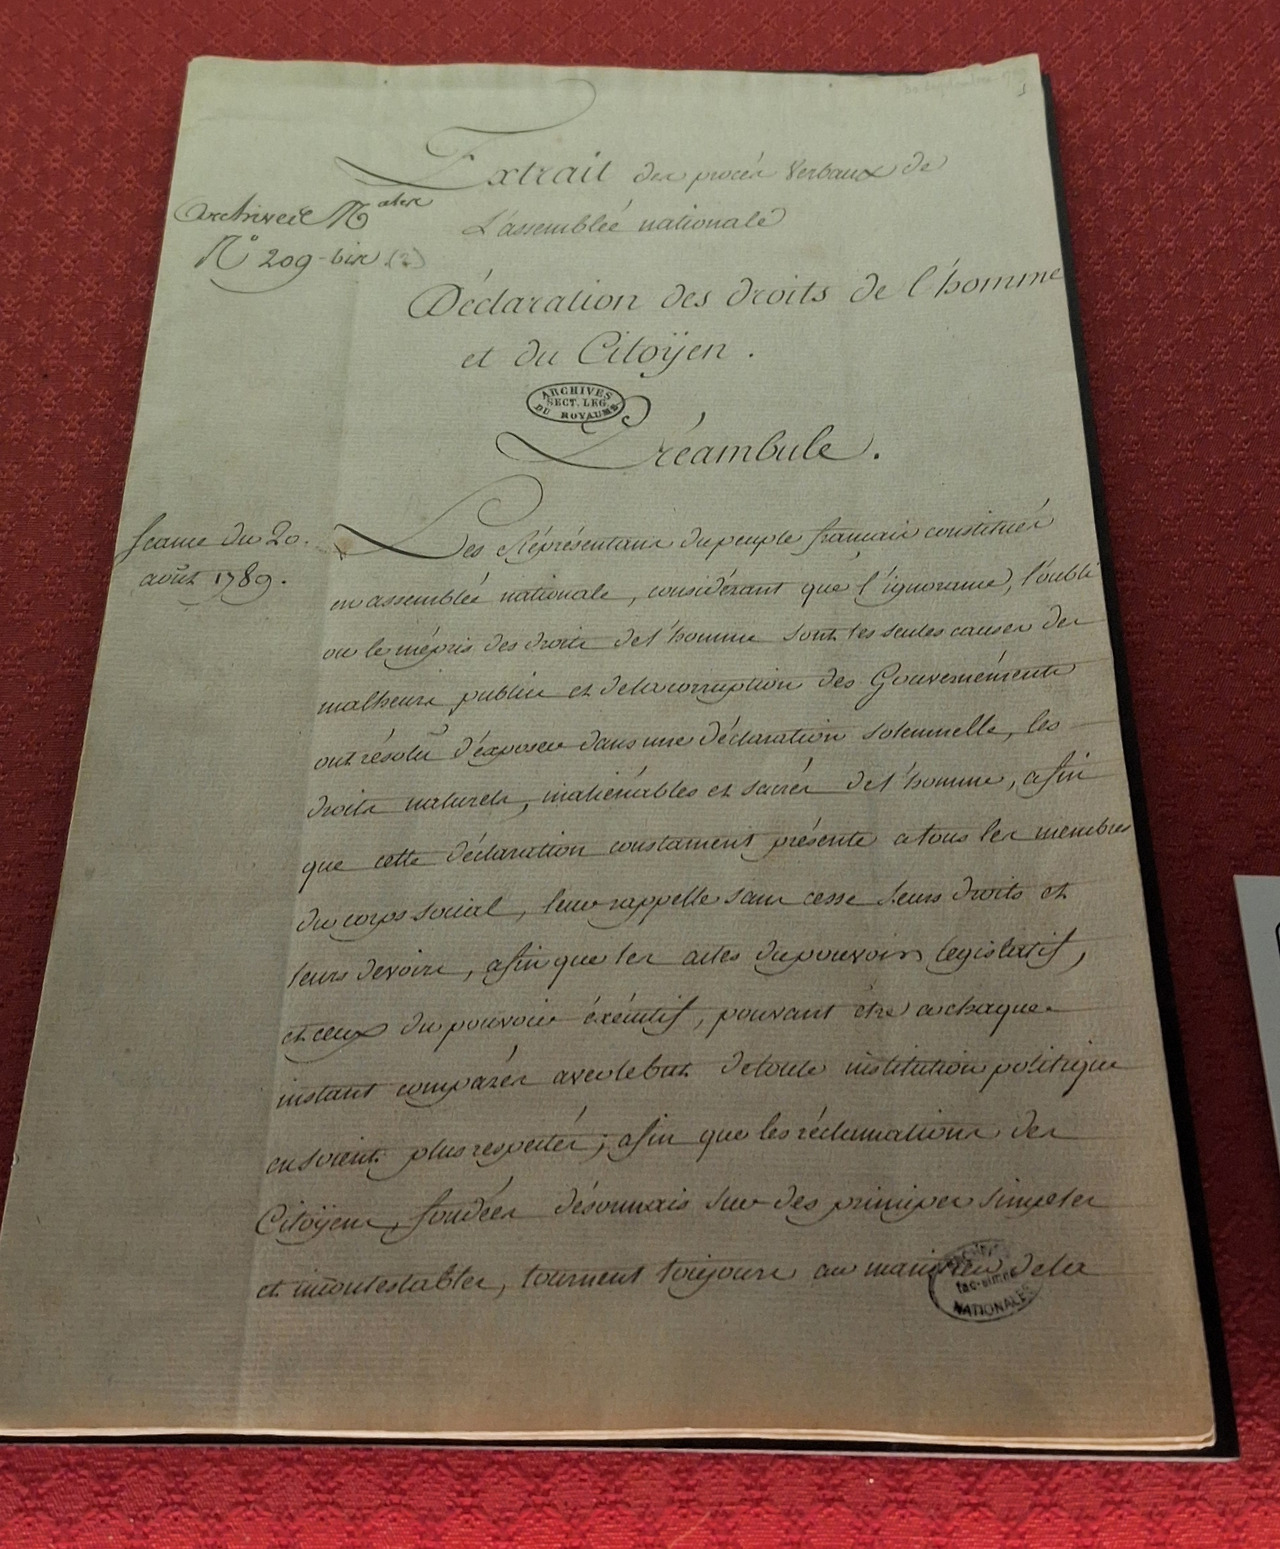 Extrait des procès Verbaux de
L'assemblée nationale
archivée
N° 209-bis (2)
Déclaration des droits de l'homme
et du Citoÿen.
ARCHIVES
SECT. LEG.
DU ROYAUME
Préambule.
Seance du 20.
août 1789.
Les Réprésentans du peuple français constitués
en assemblée nationale, considérant que l'ignorance, l'oubli
ou le mépris des droits de l'homme sont les seules causes des
malheurs publics et de la corruption des Gouvernéments
ont résolu d'exposer dans une déclaration solemnelle, les
droits naturels, inaliénables et sacrés de l'homme, afin
que cette déclaration constament présente a tous les membres
du corps social, leur rappelle sans cesse leurs droits et
leurs devoirs, afin que les actes du pouvoir legislatif,
et ceux du pouvoir éxécutif, pouvant être a chaque
instant comparés avec le but de toute institution politique
en soient plus respectés; afin que les réclamations des
Citoÿens, fondées désormais sur des principes simples
et incontestables, tournent toujours au maintien de la
ARCHIVES
fac-simile
NATIONALES